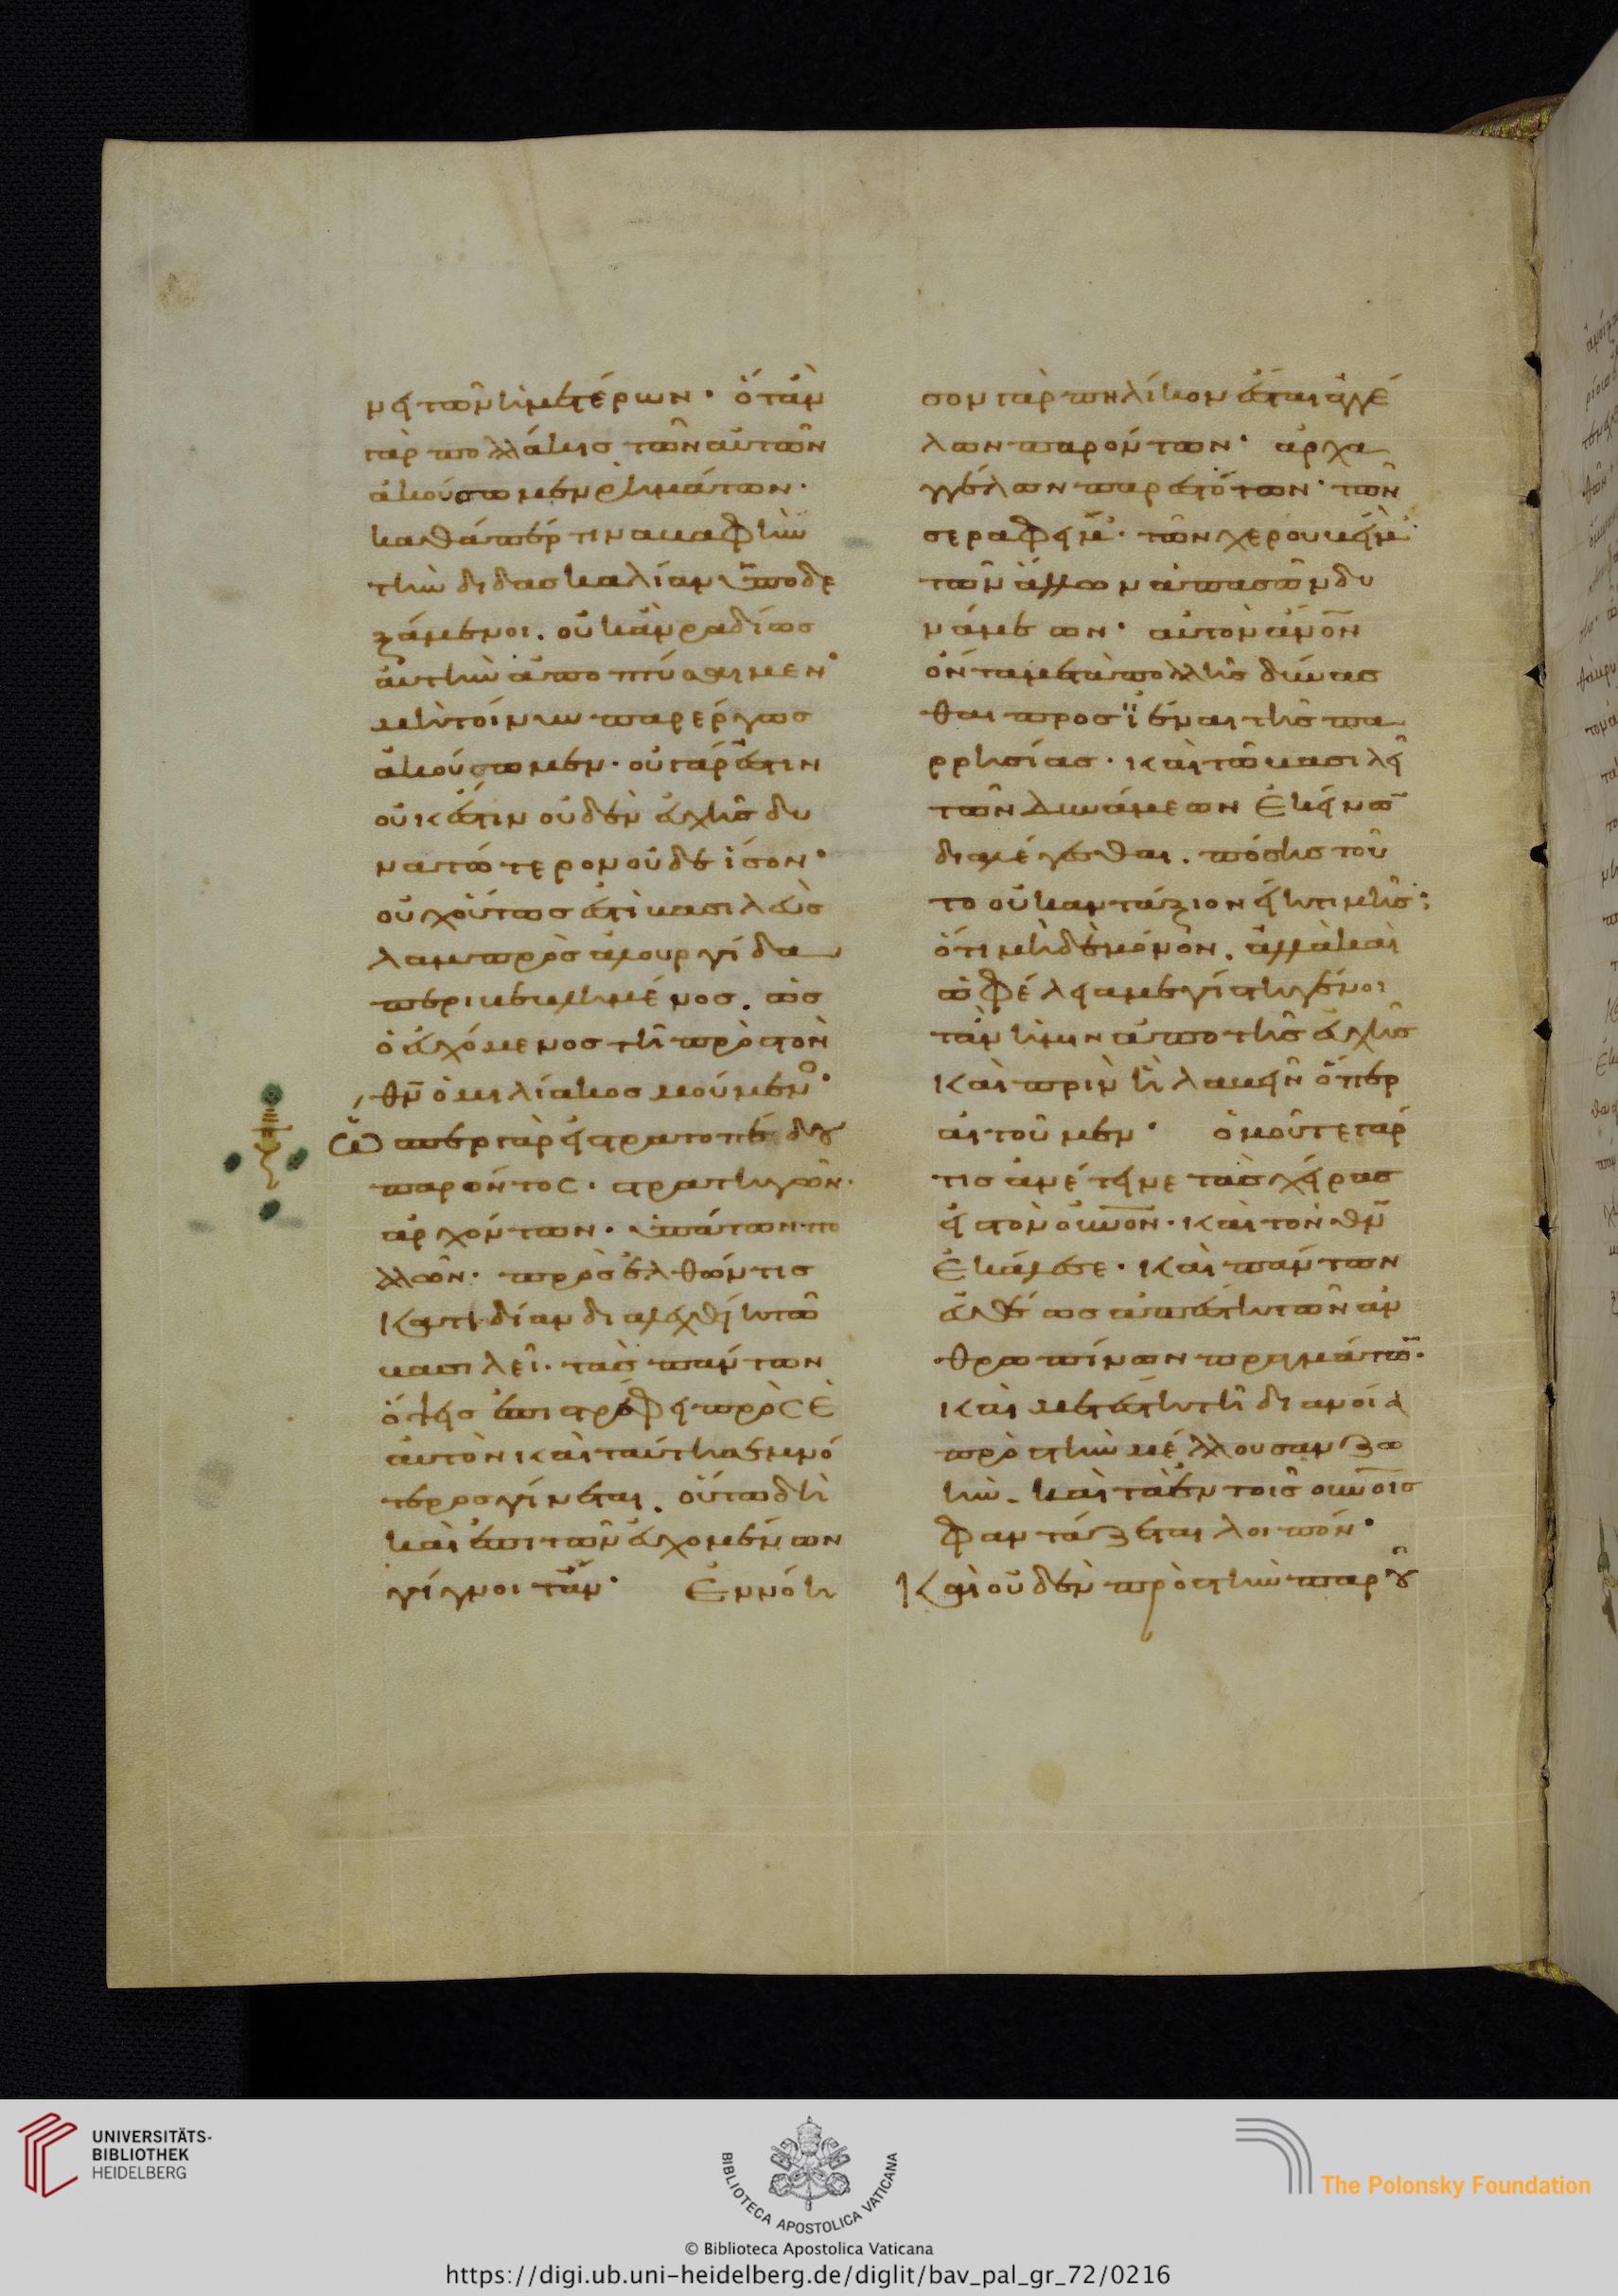 νει τῶν ἡμετέρων· ὅταν
γὰρ πολλάκις τῶν αὐτῶν
ἀκούσωμεν ῥημάτων·
καθάπερ τινα βαφὴν
τὴν διδασκαλίαν ὑποδε
ξάμενοι. οὐκ ἂν ῥαδίως
αὐτὴν ἀποπτύσαιμεν·
μὴ τοίνυν παρέργως
ἀκούσωμεν· οὐ γάρ ἐστιν
οὐκ ἔστιν οὐδὲν εὐχῆς δυ
νατώτερον οὐδὲ ἴσον·
οὐχ οὕτως ἐστὶ βασιλεὺς
λαμπρὸς ἁλουργίδα
περιβεβλημένος. ὡς
ὁ εὐχόμενος τῆ πρὸς τὸν
θν̅ ὁμιλία κοσμούμενο·
Ὥσπερ γὰρ εἰ στρατοπέδου
παρόντος· στρατηγῶν·
ἀρχόντων· ὑπάτων πο
λλῶν· προσελθών τις
κατιδίαν διαλεχθείη τῶ
βασιλεῖ· τὰς πάντων
ὄψεις ἐπιστρέφει πρὸς ἑ
αυτὸν καὶ ταύτη σεμνό
τερος γίνεται. οὕτω δὴ
καὶ ἐπι τῶν εὐχομένων
γίγνοιτ᾽ ἄν· Ἐννόη
σον γὰρ πηλίκον ἐστιν ἀγγέ
λων παρόντων· ἀρχα
γγέλων παρεστότων· τῶν
σεραφείμ· τῶν χερουβείμ·
τῶν ἄλλων ἁπασῶν δυ
νάμεων· αὐτὸν ἄνο̅ν
ὄντα μετὰ πολλῆς δύνας
θαι προσϊέναι τῆς πα
ρρησίας· καὶ τῶ βασιλεῖ
τῶν δυνάμεων ἐκείνω̅
διαλέγεσθαι. πόσης τοῦ
το οὐκ ἂν τάξιον εἴη τιμῆς;
ὅτι μὴ δὲ μόνον. ἀλλὰ καὶ
ὠφέλεια μεγίστη γένοι
τ᾽ ἂν ἡμιν ἀπο τῆς εὐχῆς
καὶ πρὶν ἢ λαβεῖν ὅπερ
αἰτοῦμεν· ὁμοῦ τε γάρ
τις ἀνέτεινε τὰς χεῖρας
εἰς τὸν οὐνο̅ν· καὶ τὸν θν̅
ἐκάλεσε· καὶ πάντων
εὐθέως ἀπέστη τῶν ἀν
θρωπίνων πραγμάτω̅.
καὶ μετέστη τῆ διανοία
πρὸς τὴν μέλλουσαν ζω
ήν. καὶ τὰ ἐν τοῖς οὐνο̅ις
φαντάζεται λοιπόν·
Καὶ οὐδὲν πρὸς τὴν παροῦ
UNIVERSITÄTS-
BIBLIOTHEK
HEIDELBERG
BIBLIOTECA APOSTOLICA VATICANA
The Polonsky Foundation
© Biblioteca Apostolica Vaticana
https://digi.ub.uni-heidelberg.de/diglit/bav_pal_gr_72/0216